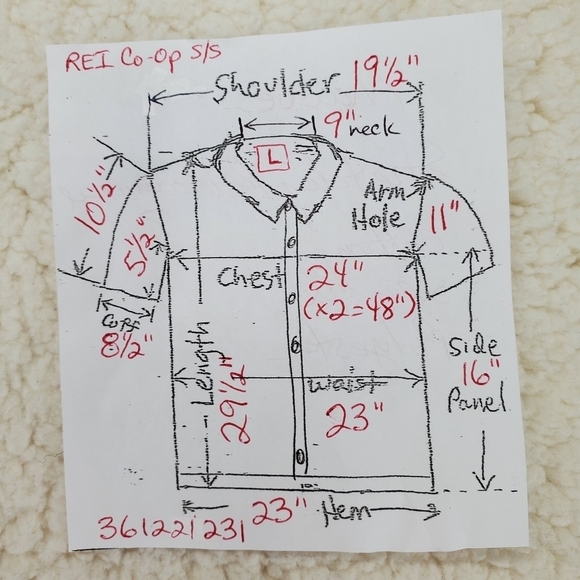 REI Co-Op S/S
Shoulder 19½"
9" neck
L
10½"
Arm
Hole
11"
5½"
Chest 24"
(x2=48")
Cuff
8½"
Length
29½"
Side
16"
Panel
waist
23"
23" Hem
361221231